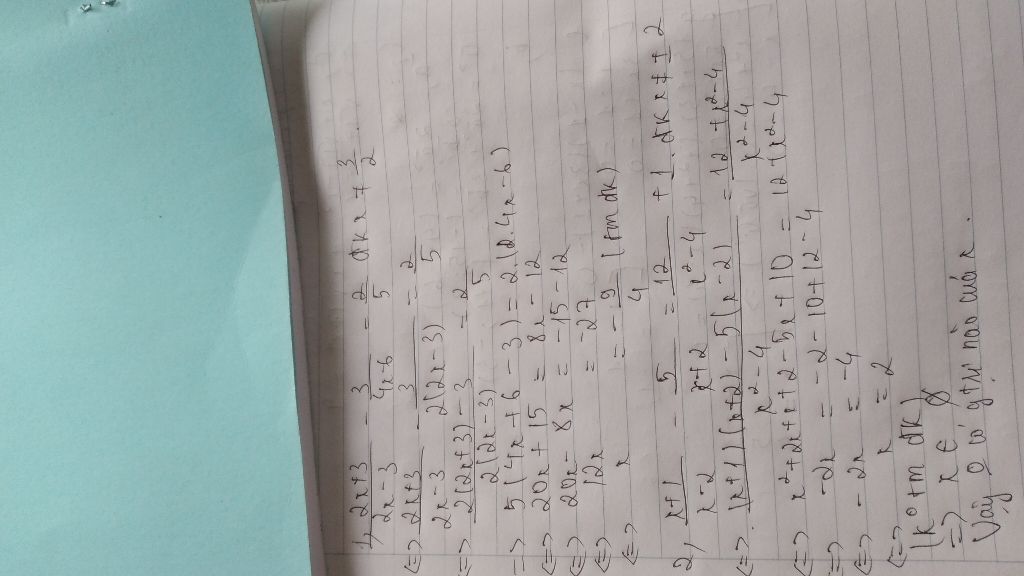 1, (2x+3)/(2x-3) - 3/(4x-6) = 2/5 đk x ≠ 3/2
<=> (2x+3)/(2x-3) - 3/(2(2x-3)) = 2/5
<=> (2(2x+3)-3)/(2(2x-3)) = 2/5
=> 5(4x+6-3) = 2.(4x-6)
<=> 20x+15 = 8x-12
<=> 20x-8x = -15-12
<=> 12x = -27
<=> x = -9/4 (tm đk)
2, (x+1)/(x-2) - 5/(x+2) = 12/(x²-4) + 1. đk x ≠ ±2
<=> ((x+1)(x+2)-5(x-2))/(x²-4) = (12+x²-4)/(x²-4)
<=> x²+2x+x+2-5x+10 = 12+x²-4
<=> -2x = -2-10+12-4
<=> -2x = -4
<=> x = 2
(k° tm đk)
=> x ∈ ∅
Vậy 0 có gtri nào của x.